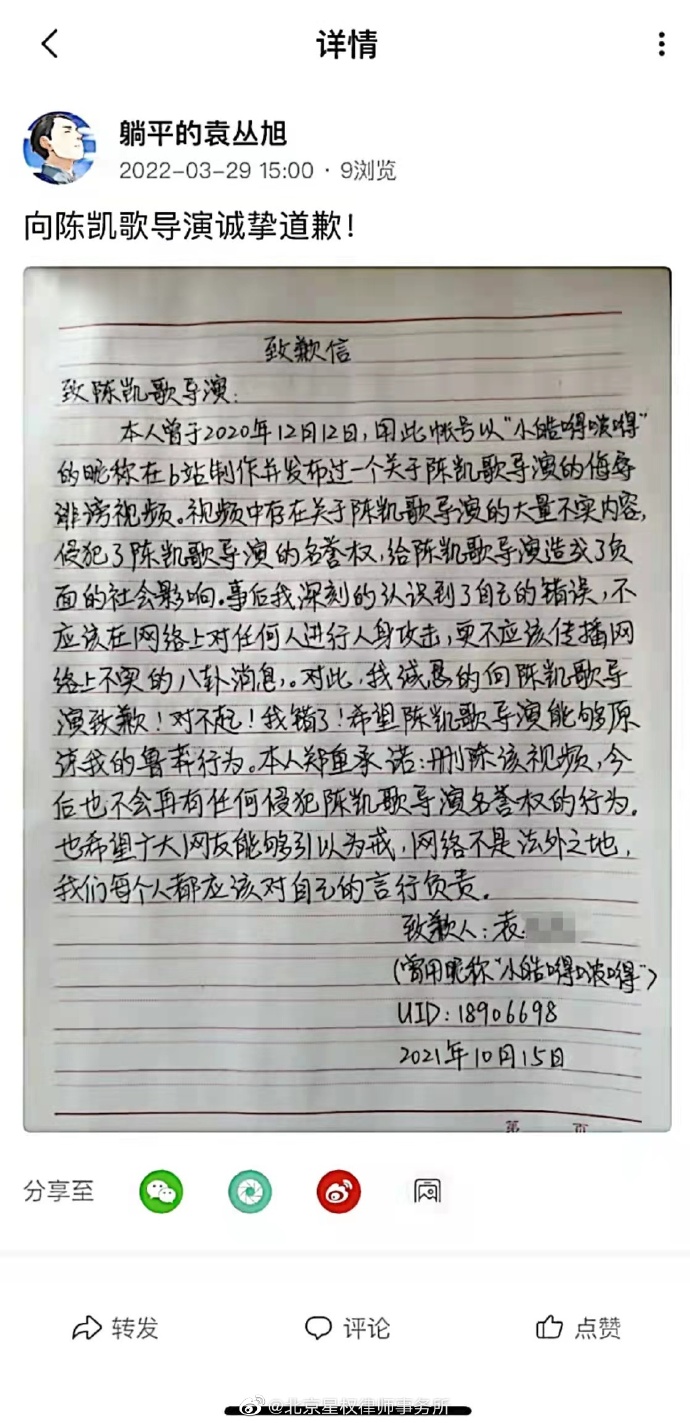 详情
躺平的袁丛旭
2022-03-29 15:00 · 9浏览
向陈凯歌导演诚挚道歉！
致歉信
致陈凯歌导演：
本人曾于2020年12月12日，用此帐号以“小皓嘚啵嘚”
的昵称在b站制作并发布过一个关于陈凯歌导演的侮辱
诽谤视频。视频中存在关于陈凯歌导演的大量不实内容，
侵犯了陈凯歌导演的名誉权，给陈凯歌导演造成了负
面的社会影响。事后我深刻的认识到了自己的错误，不
应该在网络上对任何人进行人身攻击，更不应该传播网
络上不实的八卦消息。对此，我诚恳的向陈凯歌导
演致歉！对不起！我错了！希望陈凯歌导演能够原
谅我的鲁莽行为。本人郑重承诺：删除该视频，今
后也不会再有任何侵犯陈凯歌导演名誉权的行为。
也希望广大网友能够引以为戒，网络不是法外之地，
我们每个人都应该对自己的言行负责。
致歉人：袁
（曾用昵称“小皓嘚啵嘚”）
UID：18906698
2021年10月15日
第 页
分享至
转发 评论 点赞
@北京星权律师事务所